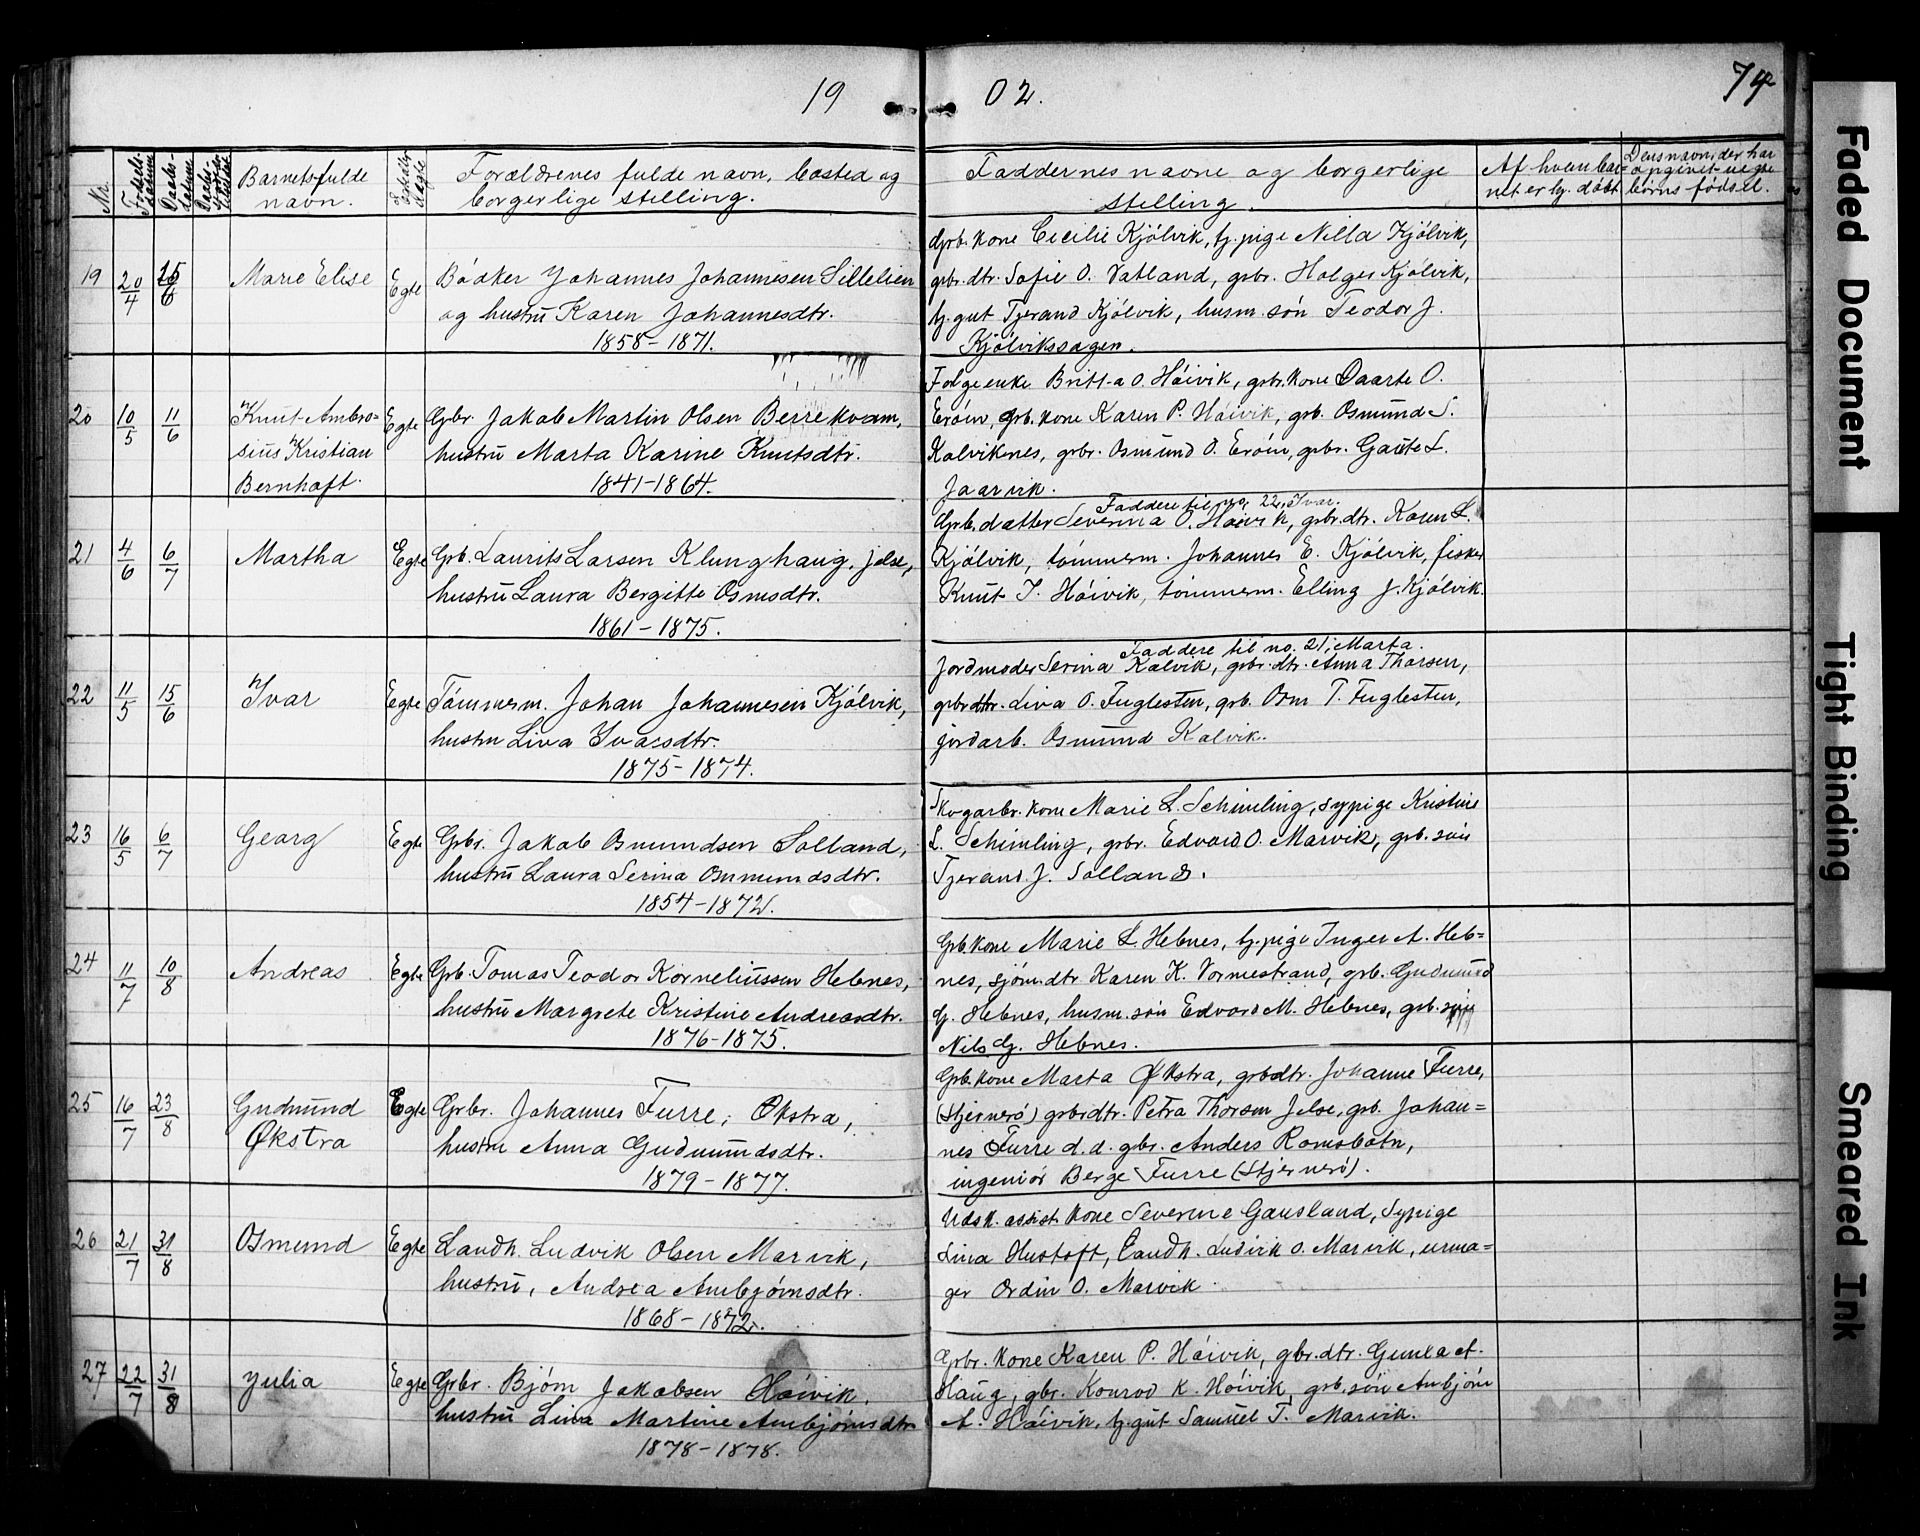 19 02. 74
Nr.
Fødsels-
datum
Daabs-
datum
Barnets fulde
navn.
Forældrenes fulde navn, bosted og
borgerlige stilling.
Faddernes navne og borgerlige
stilling.
Af hvem bar-
net er hj. døbt
Dens navn, der har
opgivet uegte
børns fødsel.
19 20/4 15/6 Marie Elise Egte
Bødker Johannes Johannesen Sillelien
og hustru Karen Johannesdtr.
1858-1871.
Grb. kone Cecilie Kjölvik, tj. pige Nilla Kjölvik,
grbr. dtr. Sofie O. Vatland, gsbr. Holger Kjölvik,
tj. gut Tjerand Kjölvik, husm. sön Teodor J.
Kjölviksvagen.
20 10/5 11/6 Knut Ambro-
sius Kristian
Bernhoft. Egte
Gbr. Jakob Martin Olsen Berrekvam,
hustru Marta Karine Knutsdtr.
1841-1864.
Folgeenke Britta O. Höivik, gbr. kone Daarte O.
Eröin, grb. kone Karen P. Höivik, grb. Osmund S.
Kalviknes, grbr. Osmund O. Eröin, gsbr. Gaute L.
Jaarvik.
21 4/6 6/7 Martha Egte
Grb. Laurits Larsen Klunghaug, Jelse,
hustru Laura Bergitte Osmsdtr.
1861-1875.
Faddere til no. 22, Ivar.
Grb. datter Severina O. Höivik, gsbr. dtr. Karen L.
Kjölvik, tömmerm. Johannes E. Kjölvik, fisker
Knut T. Höivik, tömmerm. Elling J. Kjölvik.
22 11/5 15/6 Ivar Egte
Tömmerm. Johan Johannesen Kjölvik,
hustru Liva Ivarsdtr.
1875-1874.
Faddere til no. 21, Marta.
Jordmoder Serina Kalvik, grbr. dtr. Anna Thorsen,
grbr. dtr. Liva O. Fuglesten, grb. Osm T. Fuglesten,
jordarb. Osmund Kalvik.
23 16/5 6/7 Georg Egte
Grbr. Jakob Osmundsen Solland,
hustru Laura Serina Osmundsdtr.
1854-1872.
Skogarbr. kone Marie L. Schimling, sypige Kristine
L. Schimling, grbr. Edvard O. Marvik, grb. sön
Tjerand J. Solland.
24 11/7 10/8 Andreas Egte
Grb. Tomas Teodor Korneliussen Hebnes,
hustru Margrete Kristine Andreasdtr.
1876-1875.
Grb. kone Marie L. Hebnes, tj. pige Inger A. Heb-
nes, sjöm. dtr. Karen K. Vormestrand, grb. Gudmund
G. Hebnes, husm. sön Edvard M. Hebnes, grb. sön
Nils G. Hebnes.
25 16/7 23/8 Gudmund
Økstra Egte
Grbr. Johannes Furre, Økstra,
hustru Anna Gudmundsdtr.
1879-1877.
Grb. kone Marta Økstra, grbdtr. Johanne Furre,
(Stjernerö) grbrdtr. Petra Thorsen Jelse, grb. Johan-
nes Furre d.d. gbr. Anders Ramsbotn,
ingeniör Berge Furre (Stjernerö).
26 21/7 31/8 Osmund Egte
Landh. Ludvik Olsen Marvik,
hustru, Andrea Ambjörnsdtr.
1868-1872.
Udsk. assist. kone Severine Gausland, Sypige
Lina Hustoft, Landh. Ludvik O. Marvik, urma-
ger Ordin O. Marvik.
27 22/7 31/8 Julia Egte
Grbr. Bjørn Jakobsen Höivik,
hustru Lina Martine Ambjörnsdtr
1878-1878.
Grbr. kone Karen P. Höivik, gbr. dtr. Gunla A.
Haug, gbr. Konrad K. Höivik, grb. sön Ambjörn
A. Höivik, tj. gut Samuel T. Marvik.
Faded Document
Tight Binding
Smeared Ink